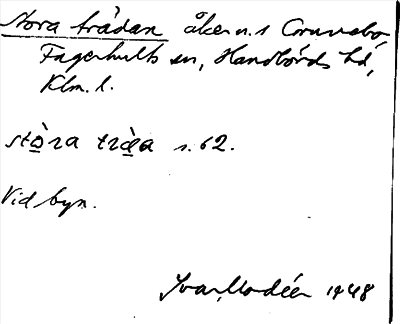 Stora trädan åker n. 1 Gruvebo,
Fagerhults sn, Handbörds hd,
Klm. l.
stò̱ra trä̱̀a s. 62.
Vid byn.
Ivar Modéer 1948